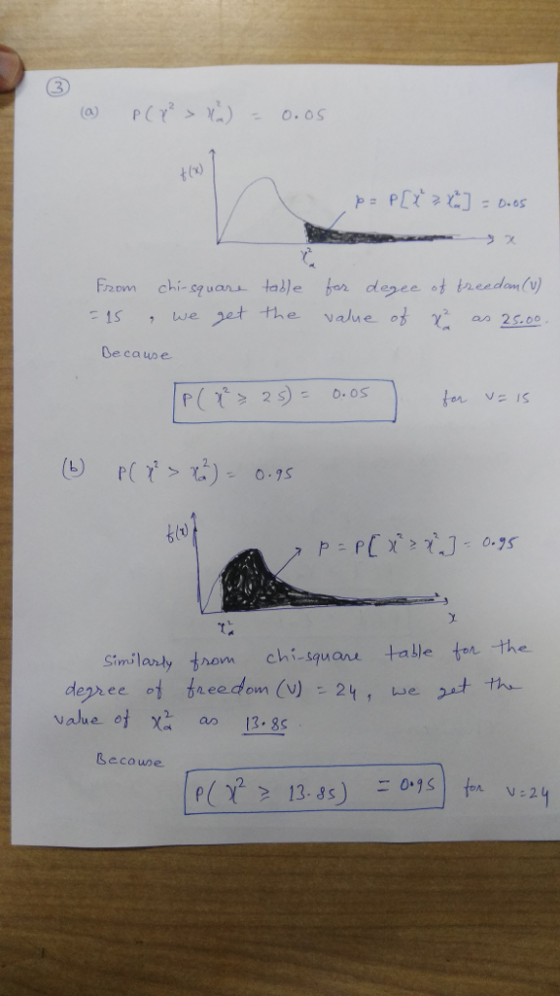 3
(a) P(χ² > χ²α) = 0.05
f(x)
p = P[χ² ≥ χ²α] = 0.05
x
χ²α
From chi-square table for degee of freedom(v)
= 15 , we get the value of χ²α as 25.00.
Because
P( χ² ≥ 25) = 0.05 for v = 15
(b) P( χ² > χ²α) = 0.95
f(x)
p = P[ χ² ≥ χ²α] = 0.95
x
χ²α
Similarly from chi-square table for the
degree of freedom (v) = 24 , we get the
value of χ²α as 13.85
Because
P( χ² ≥ 13.85) = 0.95 for v = 24